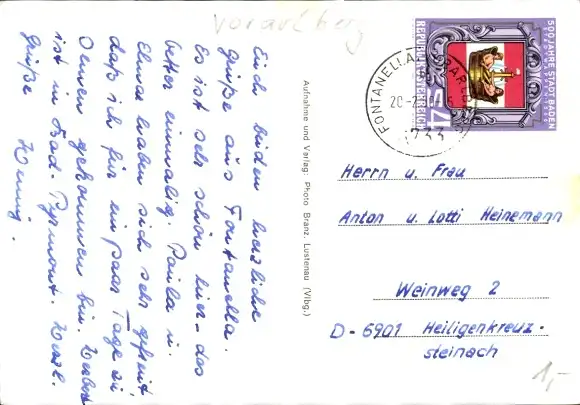 Vorarlberg
Euch beiden herzliche
Grüße aus Fontanella.
Es ist sehr schön hier – das
Wetter einmalig. Paula u.
Elmar haben sich sehr gefreut,
daß ich für ein paar Tage zu
Ihnen gekommen bin.
ist in Bad-Pyrmont. Herzl.
Grüße
Aufnahme und Verlag: Photo Branz, Lustenau (Vlbg.)
500 JAHRE STADT BADEN
REPUBLIK ÖSTERREICH
S 4
FONTANELLA
6733
Herrn u. Frau
Anton u. Lotti Heinemann
Weinweg 2
D-6901 Heiligenkreuz-
steinach
1,-